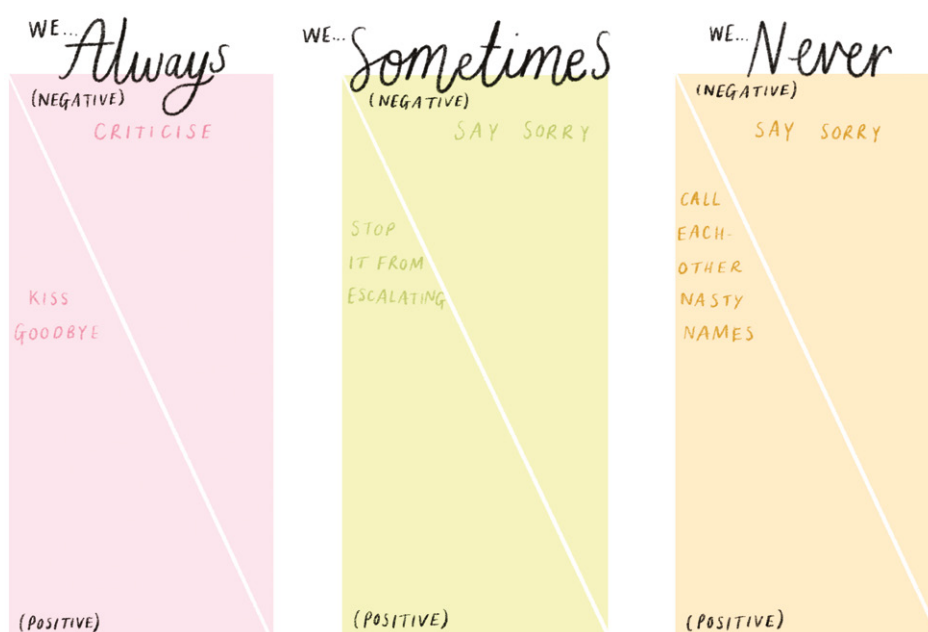 WE... Always
(NEGATIVE)
CRITICISE
KISS
GOODBYE
(POSITIVE)
WE... Sometimes
(NEGATIVE)
SAY SORRY
STOP
IT FROM
ESCALATING
(POSITIVE)
WE... Never
(NEGATIVE)
SAY SORRY
CALL
EACH-
OTHER
NASTY
NAMES
(POSITIVE)